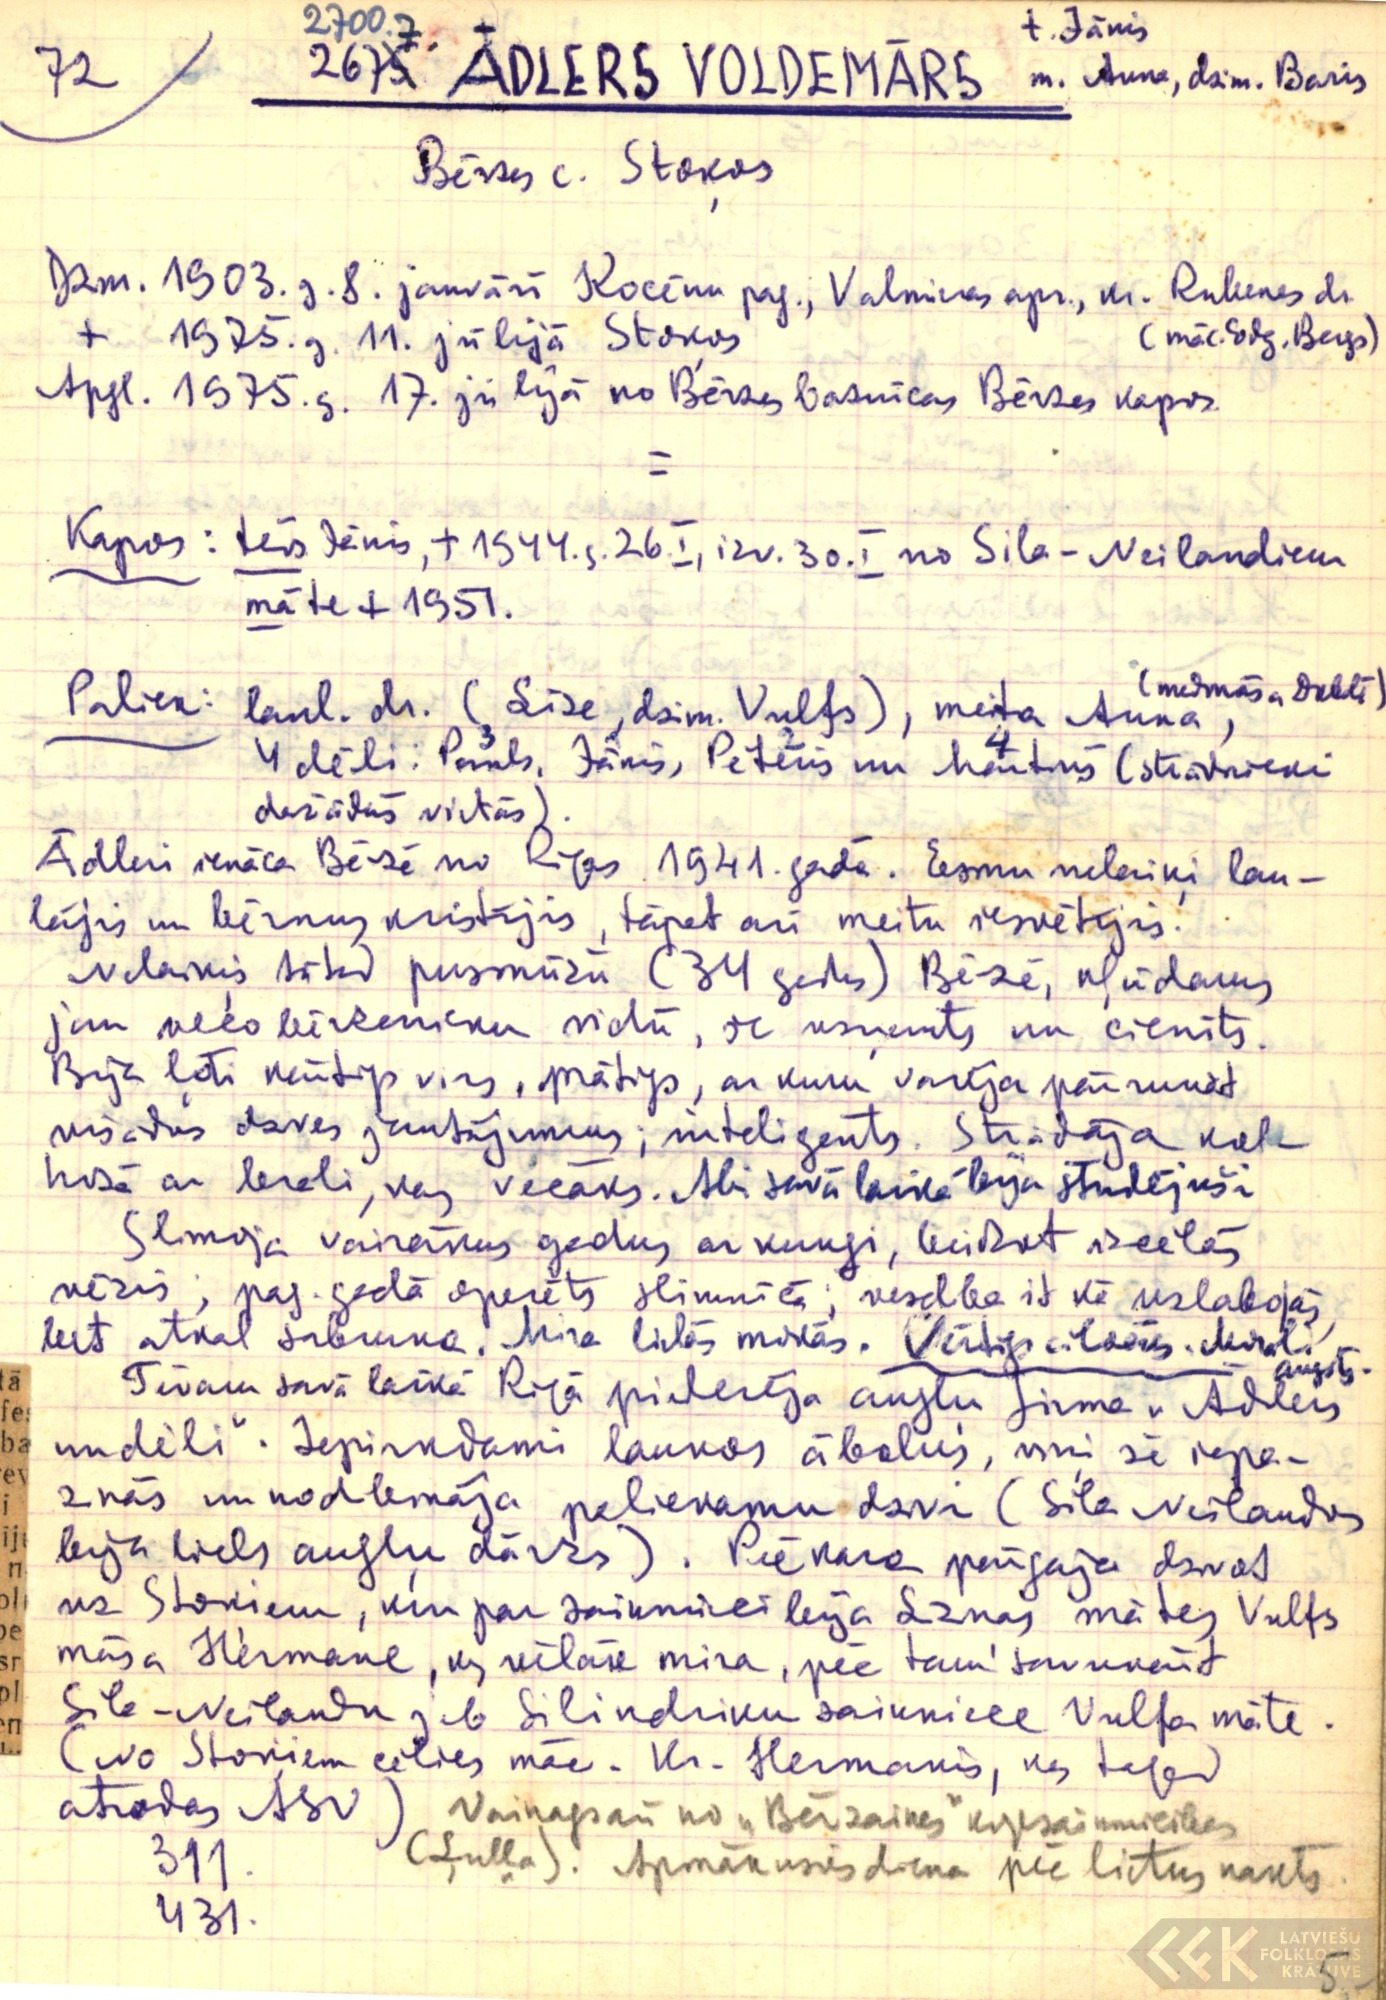 72
2700.7
2675. ĀDLERS VOLDEMĀRS
t. Jānis
m. Anna, dzim. Baris
Bērzes c. Stoķos
Dzm. 1903. g. 8. janvārī Kocēnu pag., Valmieras apr., kr. Rubenes dr.
(māc. Bergs)
+ 1975. g. 11. jūlijā Stoķos
Apgl. 1975. g. 17. jūlijā no Bērzes baznīcas Bērzes kapos
=
Kapos: tēvs Jānis, + 1944. g. 26. I, izv. 30. I no Sila-Neilandiem
māte + 1951.
Paliek: laul. dr. (Līze, dzim. Vulfs), meita Anna, (medmāsa Dobelē)
4 dēli: Pauls, 3 Jānis, Pēteris 2 un Mārtiņš 4 (strādnieki
dažādās vietās).
Ādleri ienāca Bērzē no Rīgas 1941. gadā. Eesmu nelaiķi lau-
lājis un bērnus kristījis, tāpat arī meitu iesvētījis.
Nelaiķis tātad pusmūžu (34 gadus) Bērzē, kļūdams
jau veco bērzenieku vidū, ir uzņemts un cienīts.
Bija ļoti kārtīgs vīrs, prātīgs, ar kuru varēja pārrunāt
visādus dzīves jautājumus; inteliģents. Strādāja kol-
hozā ar lereli, kas vecāks. Abi savā laikā bija studējuši
Slimoja vairākus gadus ar kuņģi, beidzot izcēlās
vēzis; pag. gadā operēts slimnīcā; veselība it kā uzlabojās,
bet atkal sabruka. Mira lielās mokās. Vērtīgs cilvēks. Morāli
augsts.
Tēvam savā laikā Rīgā piederēja augļu firma „Ādlers
un dēli". Iepirkdami laukos ābolus, viņi še iepa-
zinās un nodibināja paliekamu dzīvi (Sila Neilandos
bija liels augļu dārzs). Pēc kara pārgāja dzīvot
uz Stoķiem, kur par saimnieci bija Līznas mātes Vulfs
māsa Hermane, kas vēlāk mira, pēc tam savukārt
Sila-Neilandu jeb Silindriķu saimniece Vulfa māte.
(No Stoķiem cēlies māc. Kr. Hermanis, kas tagad
atrodas ASV)
Vainags arī no „Bērzaines" kopsaimniecības
(Ļuļļa). Apmākusies diena pēc lietus nakts.
311.
431.
5.
LATVIEŠU
FOLKLORAS
KRĀTUVE